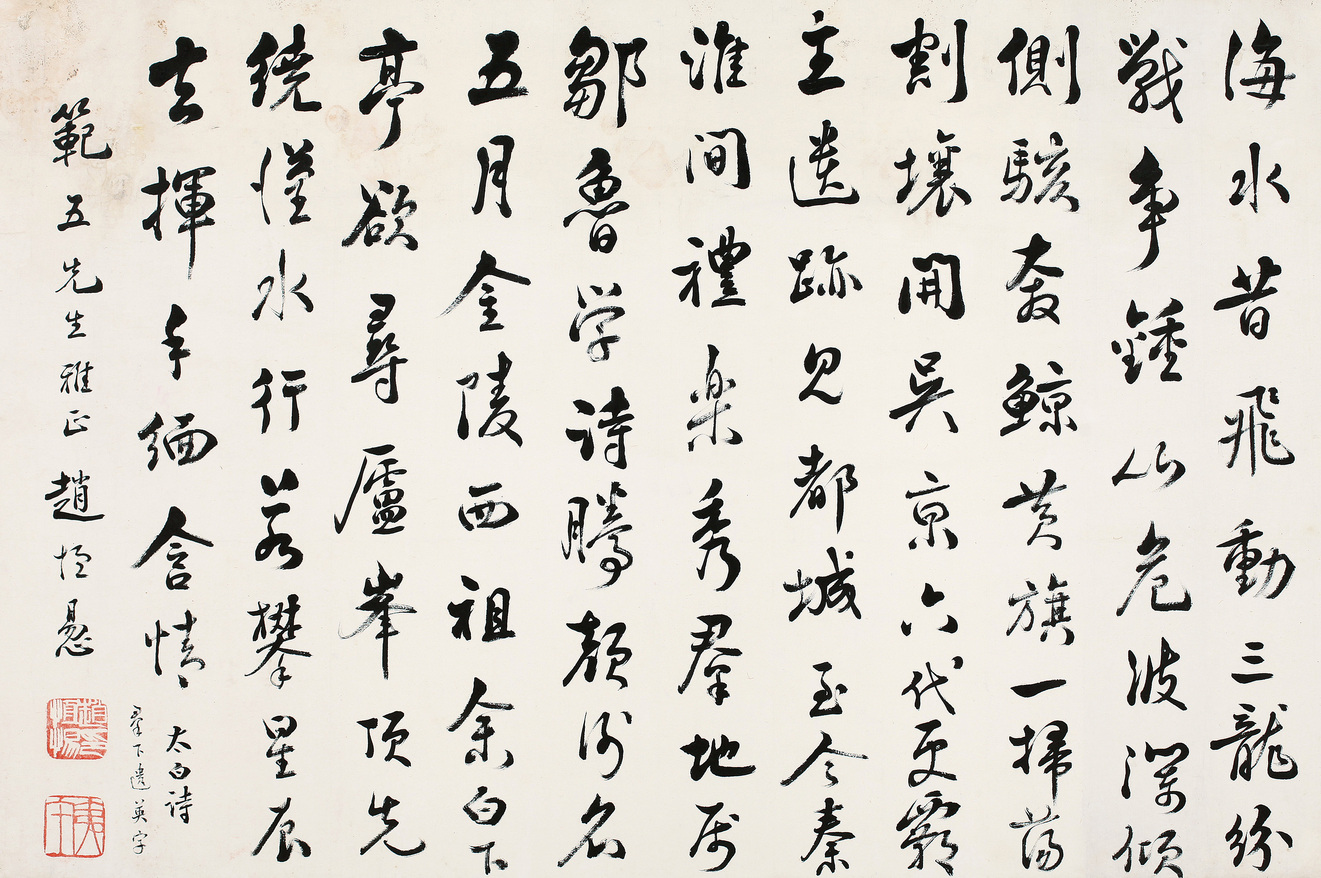 海水昔飛動三龍紛
戰争鍾山危波瀾傾
側駭奔鯨黃旗一掃蕩
割壤開吳京六代更霸
主遺跡見都城至今秦
淮間禮楽秀羣地扇
鄒魯学詩騰顏謝名
五月金陵西祖余白下
亭欲尋廬峯頂先
繞漢水行若攀星辰
去揮手緬含情
太白詩
羣下遺英字
範五先生雅正 趙恒惕
趙恒惕印
夷午